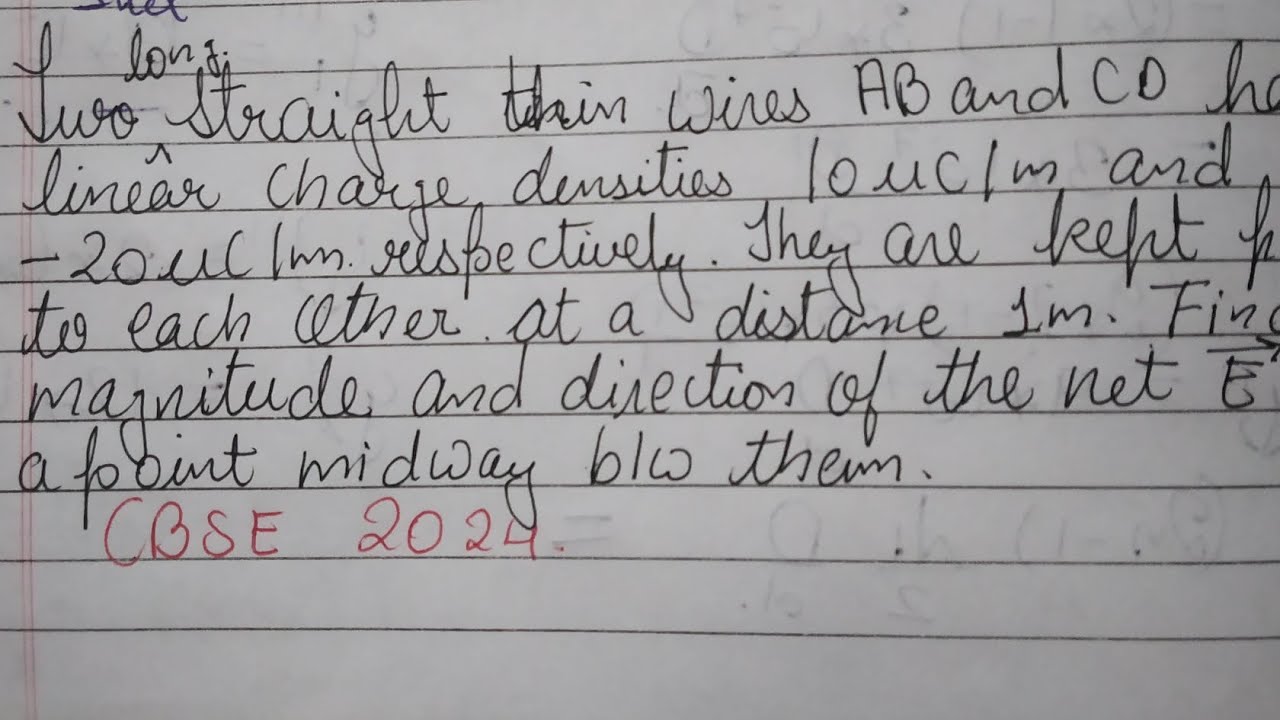 long
Two straight thin wires AB and CD ha
linear charge densities 10 uC/m and
-20uC/m. respectively. They are kept
to each other at a distance 1m. Find
magnitude and direction of the net E
a point midway b/w them.
CBSE 2024.